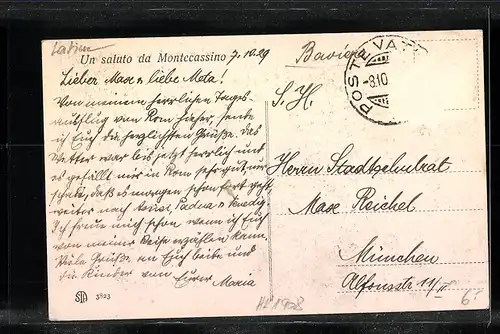 Un saluto da Montecassino 7.10.29
Lieber Max u. liebe Meta!
Von meinem herrlichen Tages-
ausflug von Rom hieher, sende
ich Euch die herzlichsten Grüße. Das
Wetter war bis jetzt herrlich und
es gefällt mir in Rom sehr gut, nur
schade, daß es morgen schon fort geht
weiter nach Padua u. Venedig
Ich freue mich schon wenn ich Euch
von meiner Reise erzählen kann.
Viele Grüße an Euch beide und
die Kinder von Eurer Maria
STA 3823
Baviera
POSTE VAT
-8.10
S. H.
Herrn Stadtschulrat
Max Reichel
München
Alfonsstr. 11/
6.-